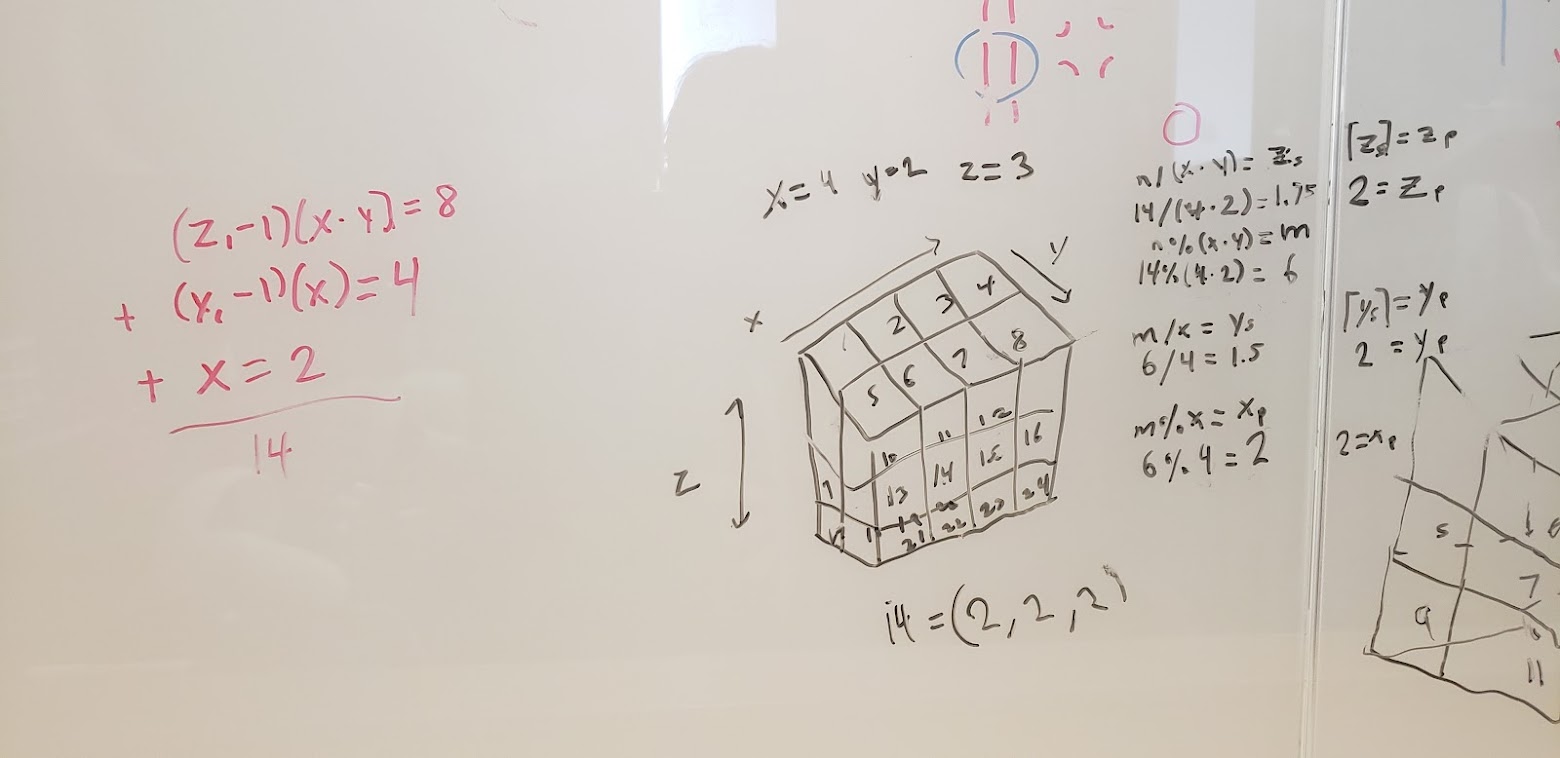 (z₁-1)(x·y)=8
+ (y₁-1)(x)=4
+ x=2
14
x=4 y=2 z=3
x
y
z
1 2 3 4
5 6 7 8
9 10 11 12
13 14 15 16
21 22 23 24
14=(2,2,2)
n/(x·y)=zₛ
14/(4·2)=1.75
n%(x·y)=m
14%(4·2)=6
m/x=yₛ
6/4=1.5
m%x=xₚ
6%4=2
⌈zₛ⌉=zₚ
2=zₚ
⌈yₛ⌉=yₚ
2=yₚ
2=xₚ
5
7
9
11